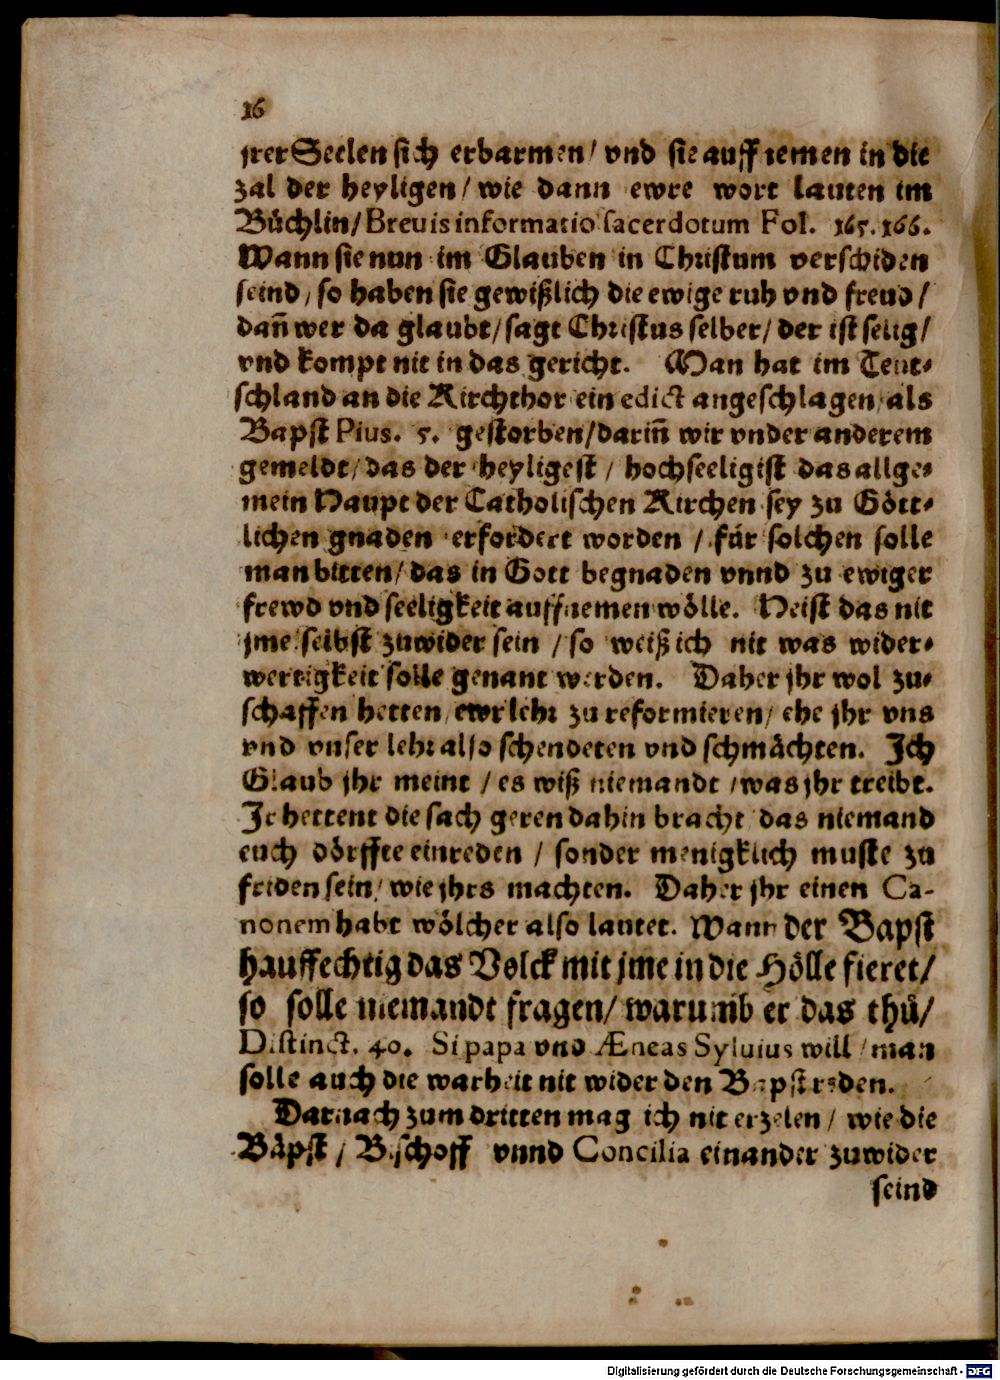 16
jrer Seelen sich erbarmen/ vnd sie auffnemen in die
zal der heyligen/ wie dann ewre wort lauten im
Büchlin/ Breuis informatio sacerdotum Fol. 165. 166.
Wann sie nun im Glauben in Christum verschiden
seind/ so haben sie gewißlich die ewige ruh vnd freud/
dañ wer da glaubt/ sagt Christus selber/ der ist selig/
vnd kompt nit in das gericht. Man hat im Teut-
schland an die Kirchthor ein edict angeschlagen/ als
Bapst Pius. 5. gestorben/ dariñ wir vnder anderem
gemeldt/ das der heyligest/ hochseeligist das allge-
mein Haupt der Catholischen Kirchen sey zu Gött-
lichen gnaden erfordert worden/ für solchen solle
man bitten/ das in Gott begnaden vnnd zu ewiger
frewd vnd seeligkeit auffnemen wölle. Heist das nit
jme selbst zuwider sein/ so weiß ich nit was wider-
wertigkeit solle genant werden. Daher jhr wol zu-
schaffen hetten/ ewr lehr zu reformieren/ ehe jhr vns
vnd vnser lehr also schendeten vnd schmächten. Ich
Glaub jhr meint/ es wiß niemandt/ was jhr treibt.
Ir hettent die sach geren dahin bracht das niemand
euch dörffte einreden/ sonder menigklich muste zu
friden sein/ wie jhrs machten. Daher jhr einen Ca-
nonem habt wölcher also lautet. Wann der Bapst
hauffechtig das Volck mit jme in die Hölle fieret/
so solle niemandt fragen/ warumb er das thů/
Distinct. 40. Si papa vnd Æneas Syluius will/ man
solle auch die warheit nit wider den Bapst reden.
Darnach zum dritten mag ich nit erzelen/ wie die
Bäpst/ Bischoff vnnd Concilia einander zuwider
seind
Digitalisierung gefördert durch die Deutsche Forschungsgemeinschaft - DFG